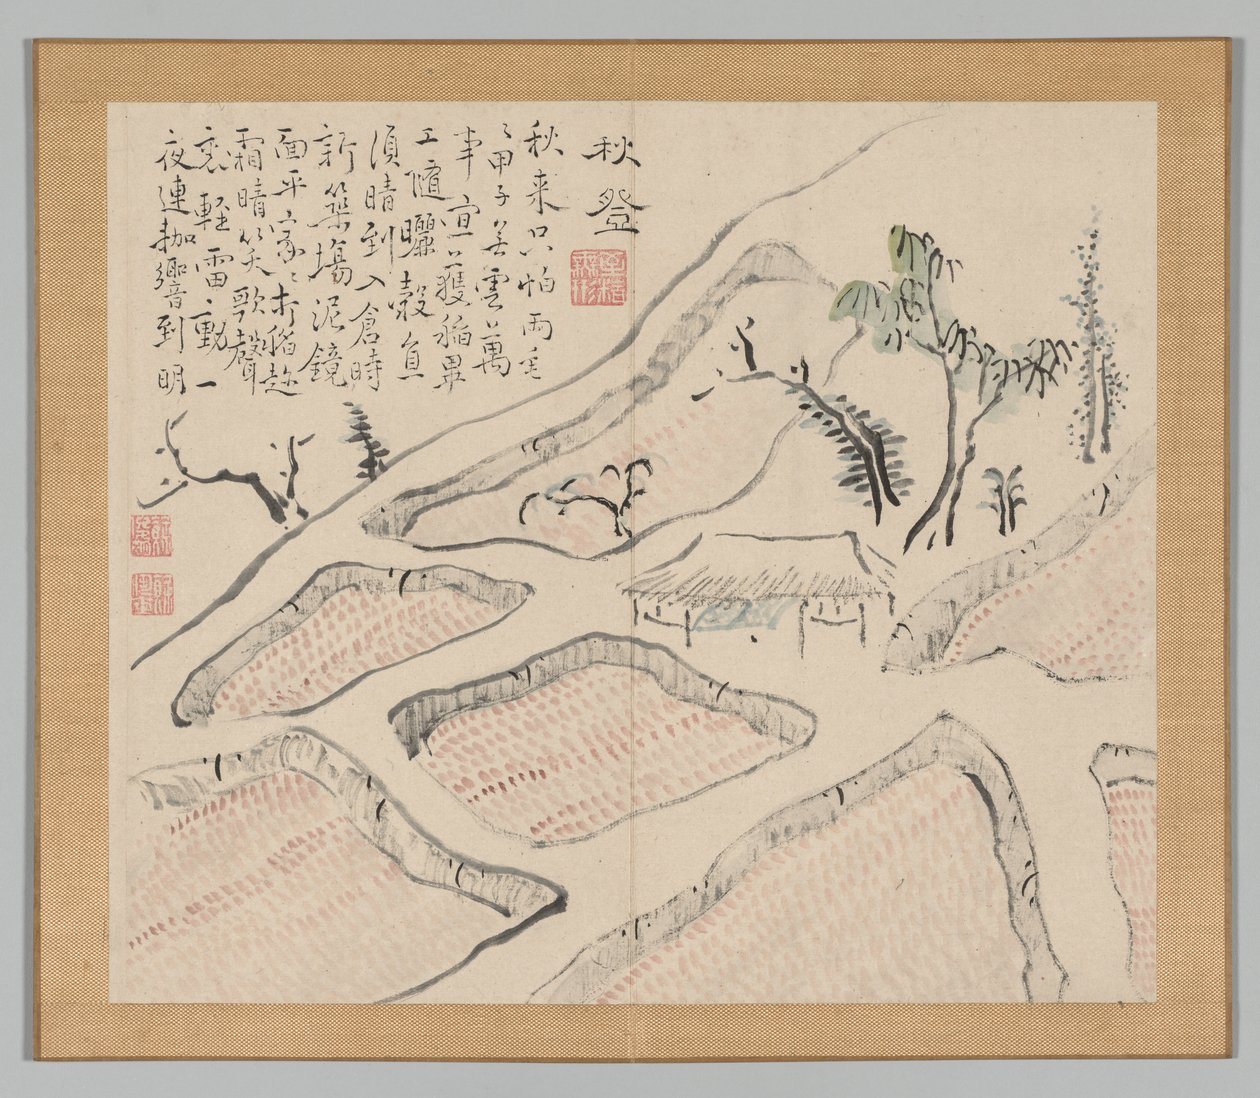 秋登
秋来只怕雨垂
〻甲子無雲萬
事宜獲稲畢
工隨曬穀直
須晴到入倉時
新築場泥鏡
面平家〻打稲趁
霜晴笑歌聲
裏輕雷動一
夜連枷響到明